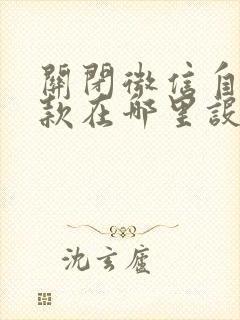 關閉微信自
款在哪里設
沈玄廬